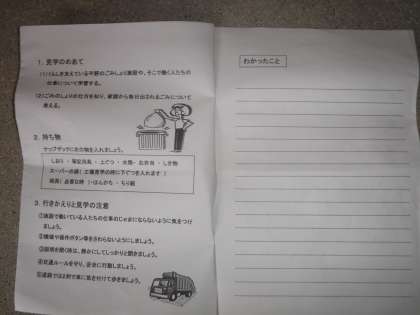 1．見学のめあて
(1)くらしを支えている平野のごみしょり施設や、そこで働く人たちの
仕事について学習する。
(2)ごみのしょりの仕方を知り、家庭から毎日出されるごみについて
考える。
2．持ち物
ナップザックに次の物を入れましょう。
しおり・筆記用具・上ぐつ・水筒・お弁当・しき物
スーパーの袋(工場見学の時に下ぐつを入れます)
雨具(必要な時)・ハンカチ・ちり紙
3．行きかえりと見学の注意
①施設で働いている人たちの仕事のじゃまにならないように気をつけ
ましょう。
②機械や操作ボタン等をさわらないようにしましょう。
③説明を聞く時は、静かにしてしっかりと聞きましょう。
④交通ルールを守り、安全に行動しましょう。
⑤道路では2列で車に気を付けて歩きましょう。
わかったこと